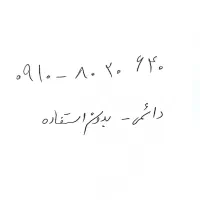 ۰۹۱۰ – ۸۰ ۲۰ ۶۴۰
دائمی – بدون استفاده